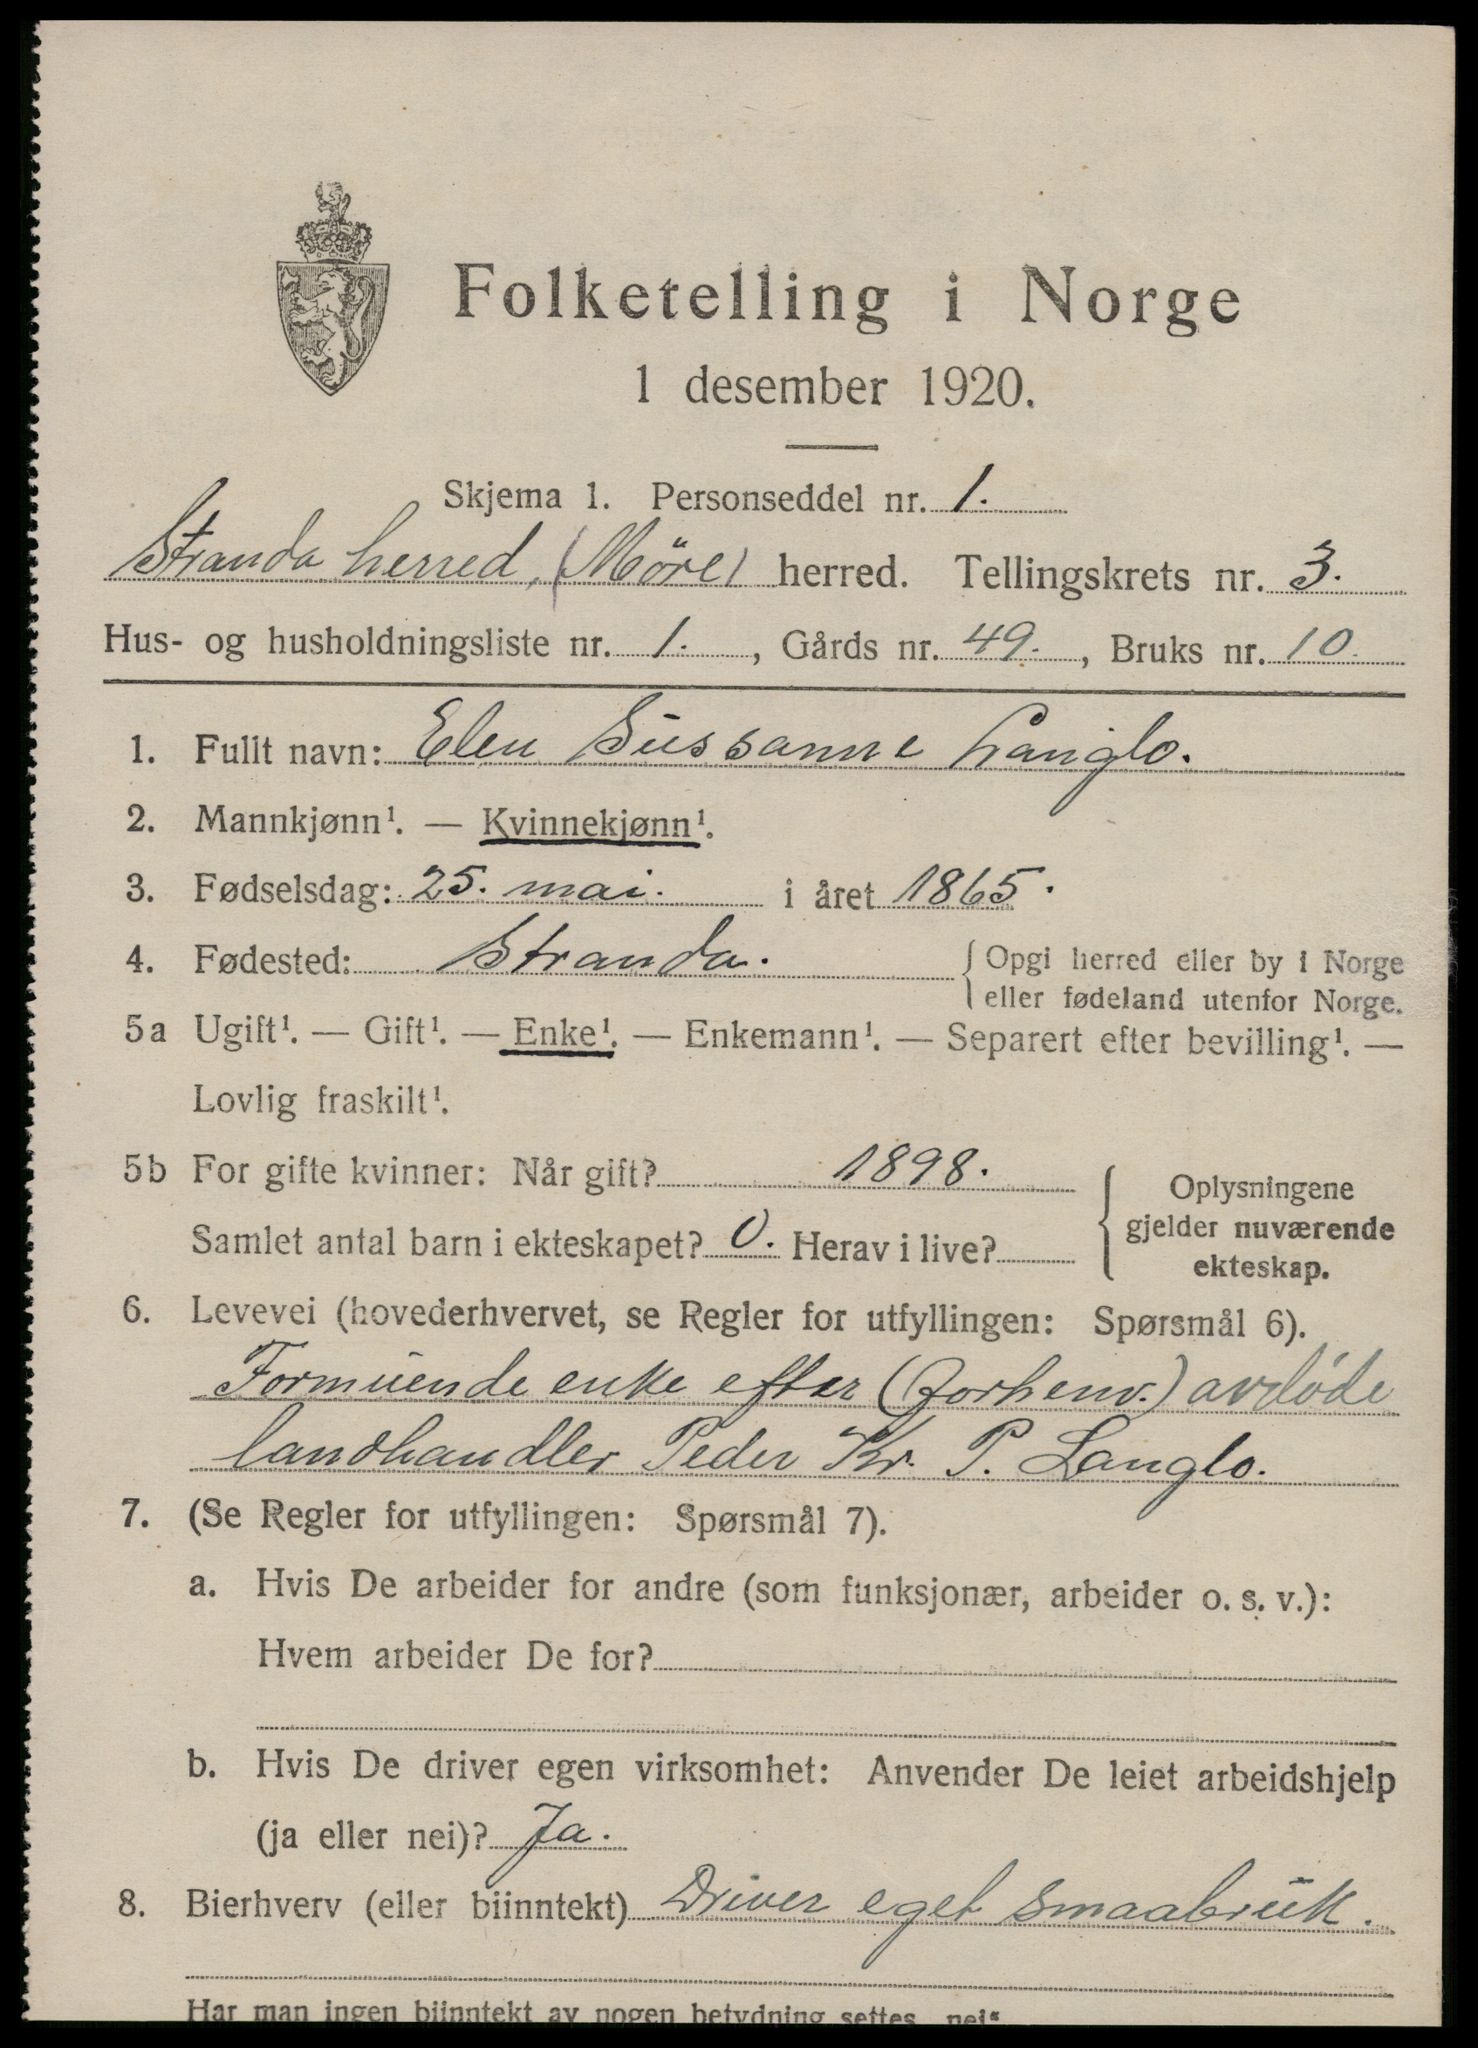 Folketelling i Norge
1 desember 1920.
Skjema 1. Personseddel nr. 1.
Stranda herred, (Möre) herred. Tellingskrets nr. 3.
Hus- og husholdningsliste nr. 1. , Gårds nr. 49. , Bruks nr. 10.
1. Fullt navn: Elen Sussanne Langlo.
2. Mannkjønn¹. — Kvinnekjønn¹.
3. Fødselsdag: 25. mai. i året 1865.
4. Fødested: Stranda. { Opgi herred eller by i Norge
eller fødeland utenfor Norge.
5a Ugift¹. — Gift¹. — Enke¹. — Enkemann¹. — Separert efter bevilling¹. —
Lovlig fraskilt¹.
5b For gifte kvinner: Når gift? 1898.
Samlet antal barn i ekteskapet? 0. Herav i live?
{ Oplysningene
gjelder nuværende
ekteskap.
6. Levevei (hovederhvervet, se Regler for utfyllingen: Spørsmål 6).
Formuende enke efter (forhenv.) avdöde
landhandler Peder Kr. P. Langlo.
7. (Se Regler for utfyllingen: Spørsmål 7).
a. Hvis De arbeider for andre (som funksjonær, arbeider o. s. v.):
Hvem arbeider De for?
b. Hvis De driver egen virksomhet: Anvender De leiet arbeidshjelp
(ja eller nei)? Ja.
8. Bierhverv (eller biinntekt) Driver eget smaabruk.
Har man ingen biinntekt av nogen betydning settes „nei“